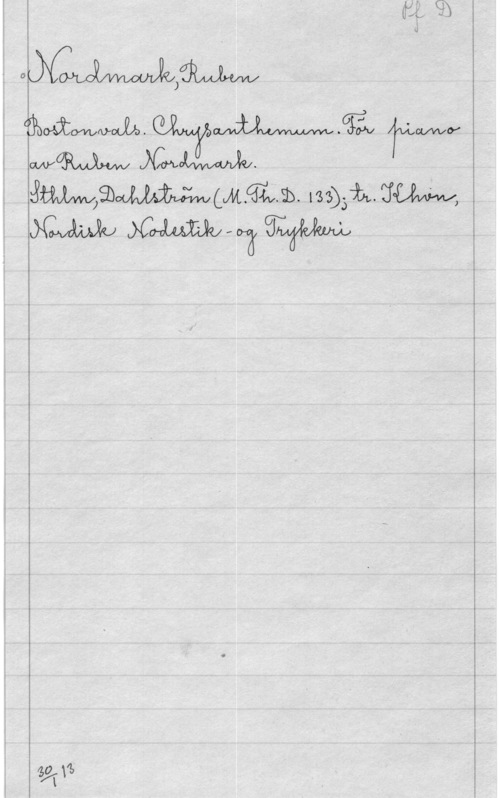 Pf D
Nordmark, Ruben
Bostonvals. Chrysanthemum. För piano
av Ruben Nordmark.
Sthlm, Dahlström (M. Th. D. 133); tr. Khvn,
Nordisk Nodestik- og Trykkeri
30/1 13